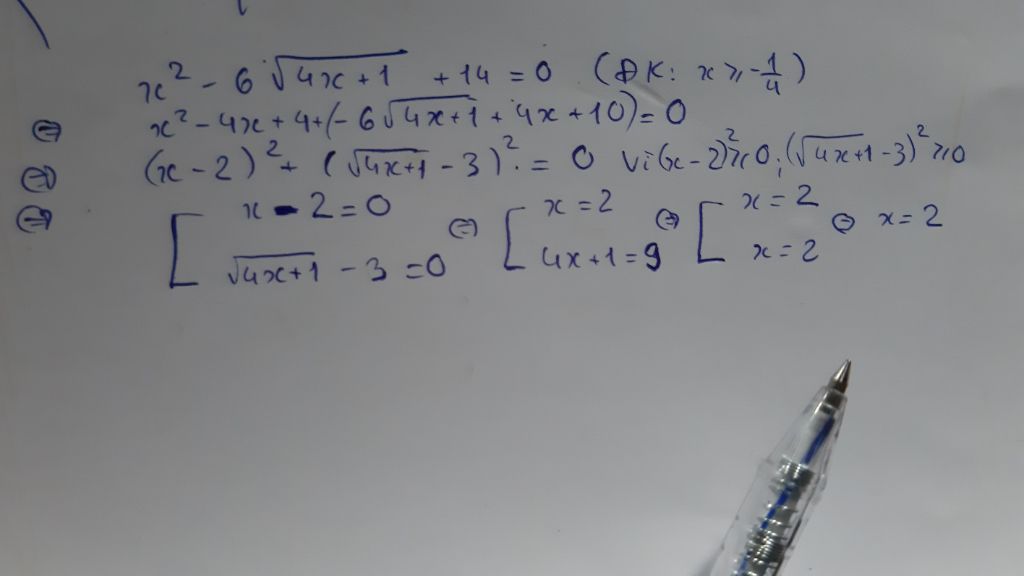 x² - 6√(4x+1) + 14 = 0 (ĐK: x ≥ -1/4)
⇔ x² - 4x + 4 + (- 6√(4x+1) + 4x + 10) = 0
⇔ (x - 2)² + (√(4x+1) - 3)² = 0 Vì (x - 2)² ≥ 0; (√(4x+1) - 3)² ≥ 0
⇔ [ x - 2 = 0 ⇔ [ x = 2 ⇔ [ x = 2 ⇔ x = 2
√(4x+1) - 3 = 0 4x + 1 = 9 x = 2